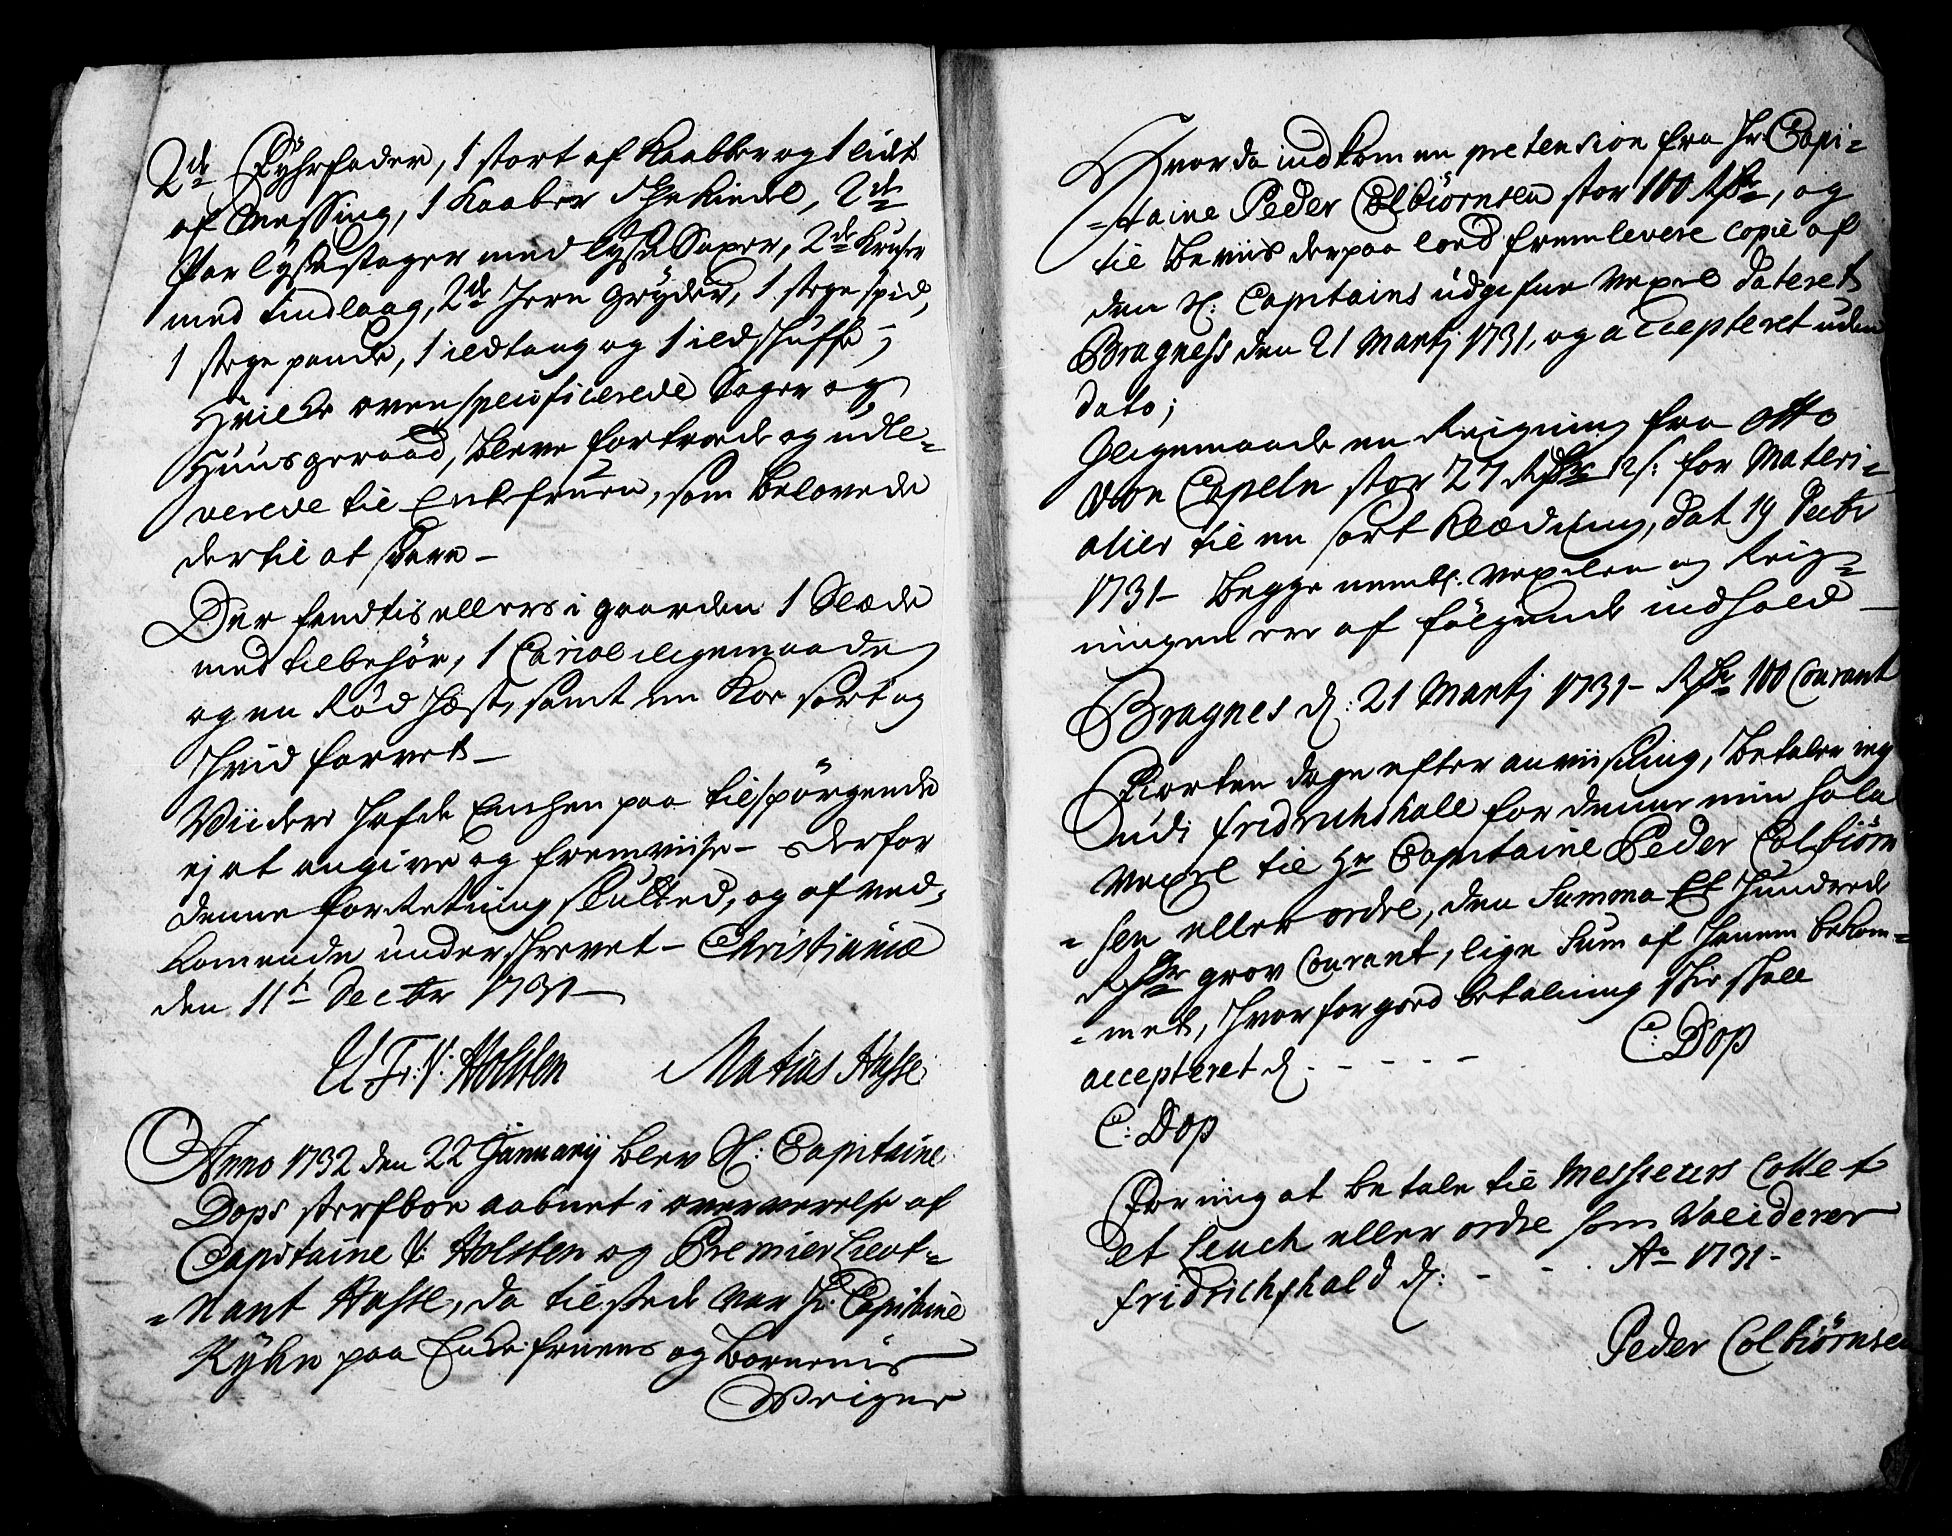 2de Fyhrfader, 1 stort af Kaabber og 1 lidet
af Messing, 1 Kaaber Thekiedel, 2de
Par lyse stager med lyse Saxer, 2de Kruser
med tindlaag, 2de Jern Gryder, 1 stege spid,
1 stege pande, 1 ildtang og 1 ildskuffe;
Hvilke ovenspecificerede Sager og
Huusgeraad, bleve fortroede og udle=
verede til Enkefruen, som belovede
dertil at svare -
Der fandtis ellers i gaarden 1 Slæde
med tilbehör, 1 Cariol iligemaade
og en Röd Hæst, samt en Koe sort og
hvid farvet -
Viidere hafde Enchen paa tilspörgende
ej at angive og fremviise - derfor
denne forretning slutted, og af ved=
komende underskrevet - Christianiæ
den 11t Decbr 1731 -
U. F. V. Holsten Matias Hasse
Anno 1732 den 22 Januarij blev Sl: Capitaine
Dops sterfboe aabnet i overværelse af
Capitaine V: Holsten og Premier Lieut=
=nant Hasse, da tilstede var Hr Capitaine
Kyhn paa Enkefruens og Børnenis
Weigne
Hvor da indkom en pretension fra Hr Capi=
=taine Peder Colbiörnsen stor 100 Rdr, og
til Beviis derpaa loed fremlevere copie af
den Sl: Capitains udgifne Vexel dateret
Bragness den 21 Martj 1731, og accepteret uden
dato;
Iligemaade en Reigning fra Otto
von Capeln stor 27 Rdr 12 s: for Materi=
alier til en sort Klædning, dat 19 Decbr
1731 - Begge nembl. vexelen og Reig=
ningen ere af fölgende indhold -
Bragnes d: 21 Martj 1731 - Rdr 100 Courant
Fiorten dage efter anviisning, betaler ieg
udi Fridrichshald for denne min Sola
Vexel til Hr Capitaine Peder Colbiörn
=sen eller ordre, den Summa Et Hundrede
Rdr grov Courant, lige Sum af hanem bekom=
=met, hvorfor goed betalning skee skall
accepteret d. - - - - C: Dop
C: Dop
For mig at betale til Messieurs Collet
et Leuch eller ordre som Valideres
Fridrichshald d: - - . Ao 1731 -
Peder Colbiörnsen